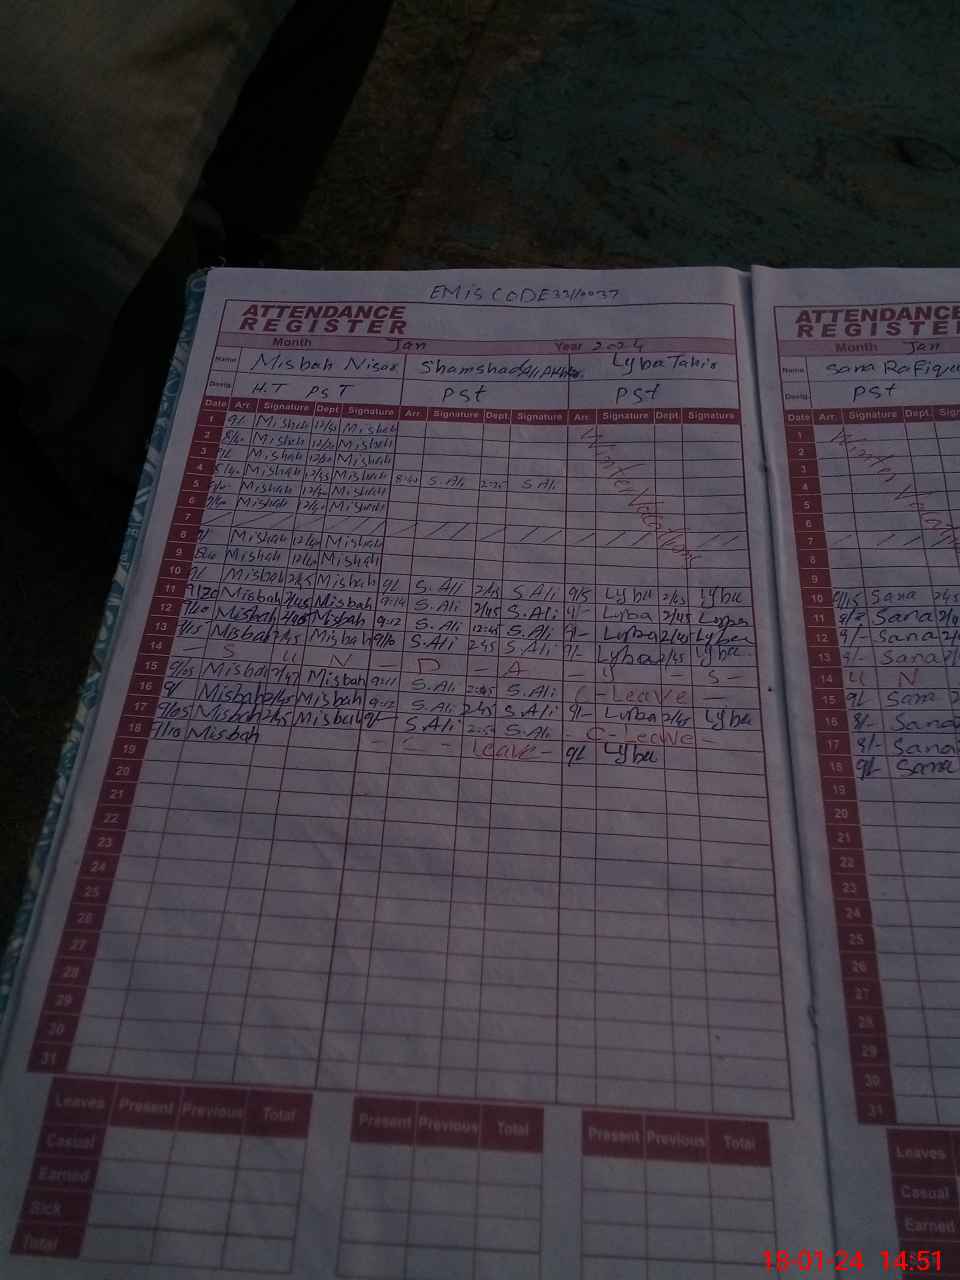 EMis CODE 33110037
ATTENDANCE REGISTER
Month Jan Year 2024
Name Misbah Nisar Shamshad Lyba Tahir
Desig. H.T PST Pst Pst
Date Arr. Signature Dept. Signature Arr. Signature Dept. Signature Arr. Signature Dept. Signature
1 9/- Misbah Misbah
2 Misbah Misbah
3 9/- Misbah Misbah
4 Misbah Misbah
5 Misbah Misbah 8:40 S.Ali S.Ali
6 Misbah Misbah
Winter Vacations
7
8 9/- Misbah Misbah
9 Misbah Misbah
10 9/- Misbah 2/45 Misbah 9/- S.Ali 2/45 S.Ali 9/5 Lyba 2/45 Lyba
11 9/20 Misbah 2/45 Misbah 9:14 S.Ali 2/45 S.Ali 9/- Lyba 2/45 Lyba
12 Misbah 2/45 Misbah 9:12 S.Ali 12:45 S.Ali 9/- Lyba 2/45 Lyba
13 9/15 Misbah 2/45 Misbah 9/10 S.Ali 2:45 S.Ali 9/- Lyba 2/45 Lyba
14 - S U N - D - A - Y - S -
15 9/05 Misbah Misbah 9:11 S.Ali 2:45 S.Ali C - Leave -
16 9/ Misbah 2/45 Misbah 9:12 S.Ali 2:45 S.Ali 9/- Lyba 2/45 Lyba
17 9/05 Misbah 2/45 Misbah 9/- S.Ali S.Ali - C - Leave -
18 9/10 Misbah - - - Leave - 9/- Lyba
19
20
21
22
23
24
25
26
27
28
29
30
31
Leaves Present Previous Total Present Previous Total Present Previous Total
Casual
Earned
Sick
Total
ATTENDANCE
REGISTE
Month Jan
Name Sana Rafique
Desig. Pst
Date Arr. Signature Dept. Sign
1
2
3
4
5
6
Winter
7
8
9
10 9/15 Sana 2/45
11 Sana
12 9/- Sana
13 9/- Sana
14 U N
15 9/- Sana
16 8/- Sana
17 9/- Sana
18 9/- Sana
19
20
21
22
23
24
25
26
27
28
29
30
31
Leaves
Casual
Earned
18-01-24 14:51